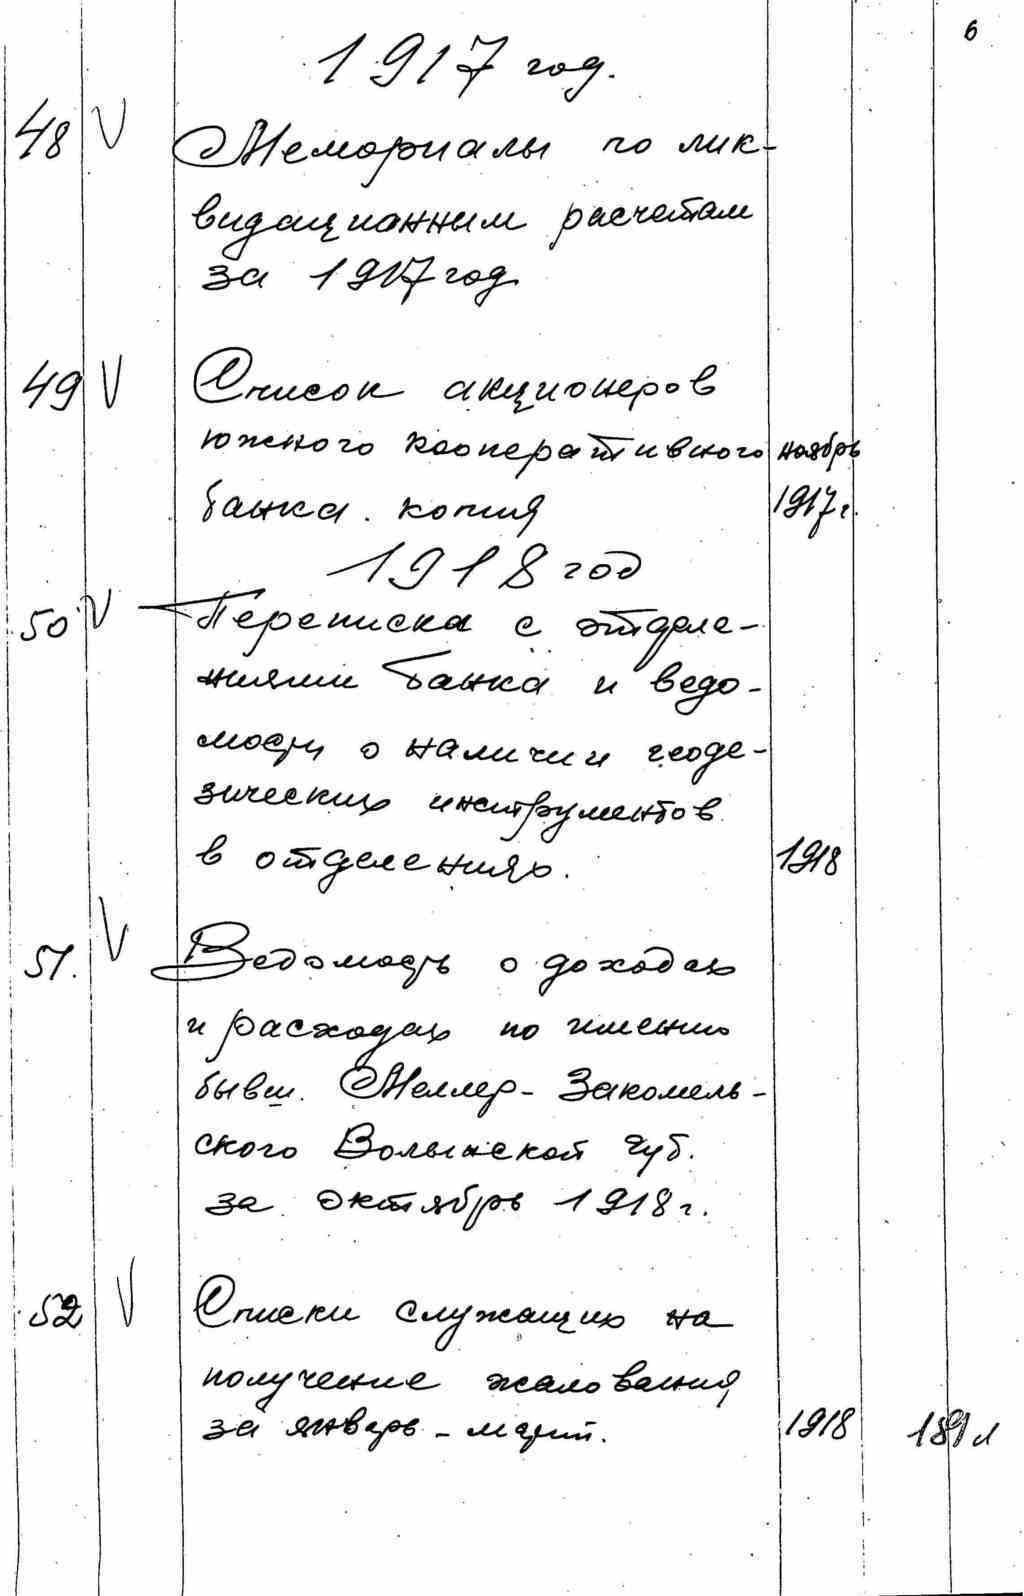 6
1917 год.
48 V Мемориалы по лик-
видационным расчетам
за 1917 год
49 V Список акционеров
южного кооперативного ноябрь
банка. копия 1917 г.
1918 год
50 V Переписка с отделе-
ниями банка и ведо-
мости о наличии геоде-
зических инструментов
в отделениях. 1918
51. V Ведомость о доходах
и расходах по имению
бывш. Меллер-Закомель-
ского Волынской губ.
за октябрь 1918 г.
52 V Списки служащих на
получение жалования
за январь - март. 1918 189 л